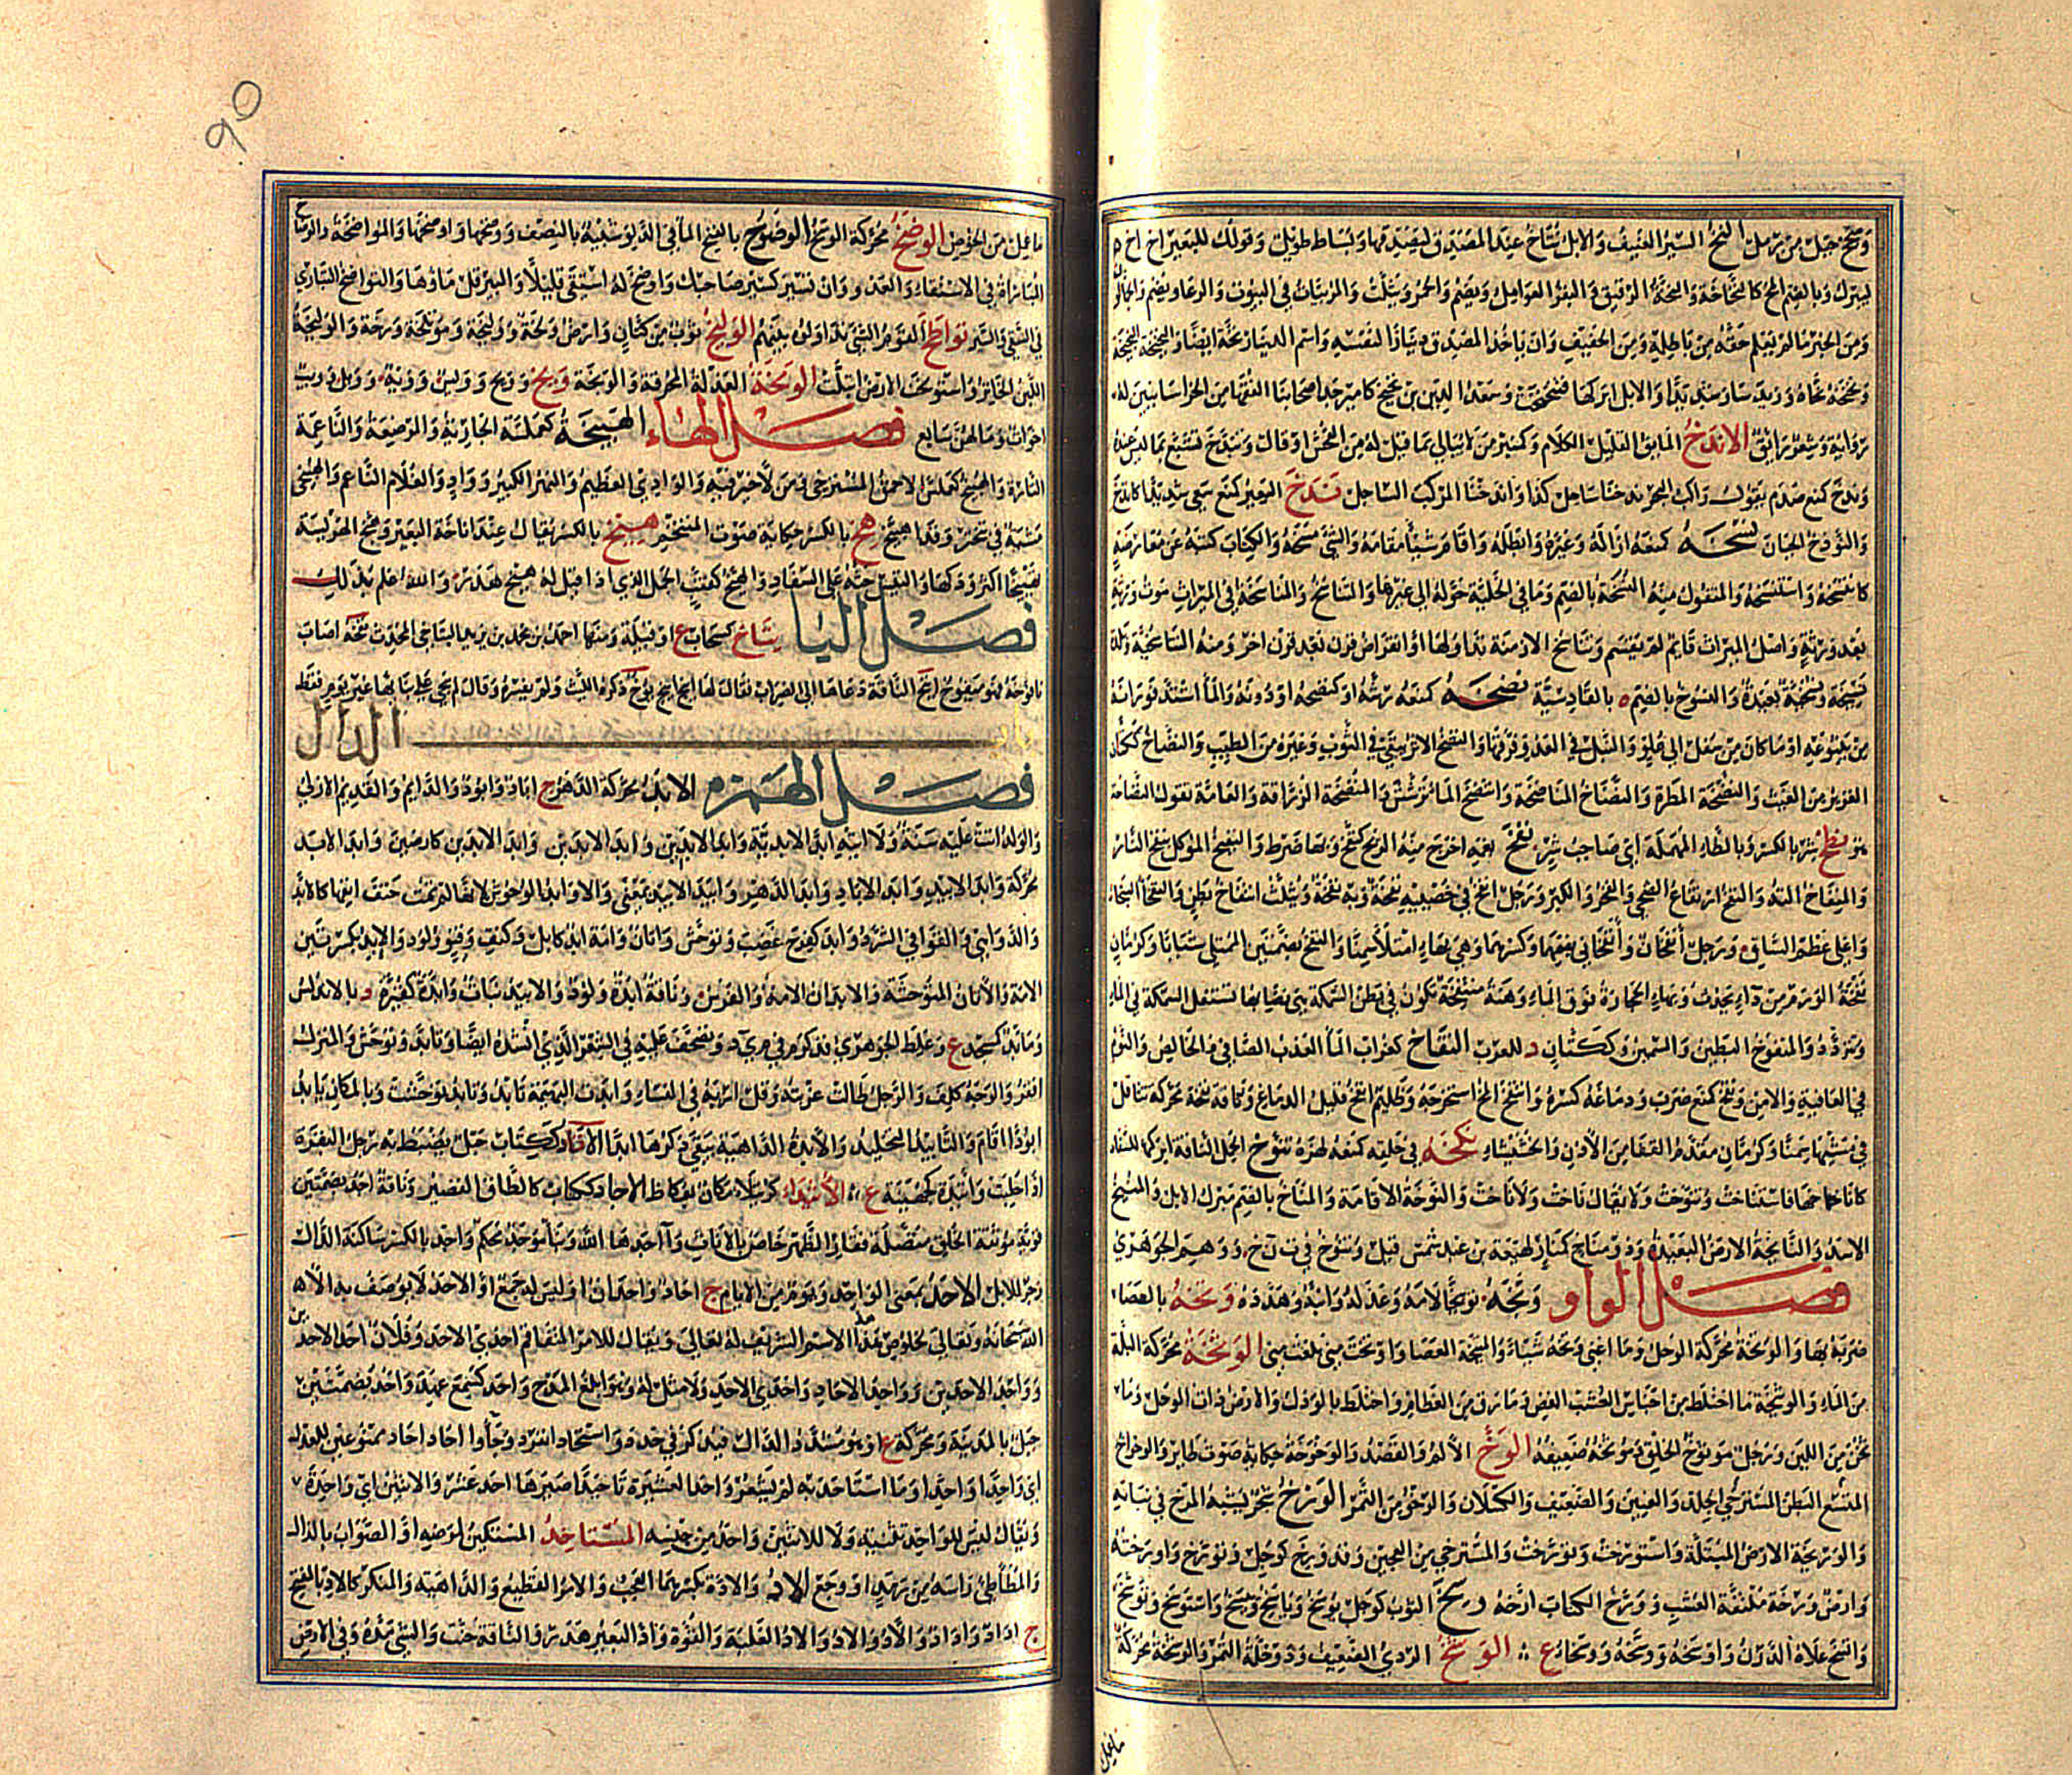 النخ السير العنيف والابل تناخ عند المصدق ليصدقها وبساط طويل وقولك للبعير اخ اخ
ليبرك وبالضم المخ كالنخاخة والنخة الرقيق والبقر العوامل ويضم والحمر ويثلث والمربيات في البيوت والرعاء ويضم والجمالون
ومن الخبر ما لم يعلم حقه من باطله ومن الخفيف وان ياخذ المصدق دينارا لنفسه واسم الدينار نخة ايضا
والابل ابركها فتنخنخت وسعد الدين بن نخيخ كامير جد اصحابنا الفقها من الخراسانيين له
رواية وشعر رائق الاندخ المايق القليل الكلام وكسير من لا يبالي بما قيل له من الفحش او قال وتندخ تشبع بما ليس عنده
وندخ كمنع صدم يقول راكب البحر ندخنا ساحل كذا واندخنا المركب الساحل ندخ البعير كمنع سعى شديدا
والنوذخ الجبان نسخه كمنعه ازاله وغيره وابطله واقام شيئا مقامه والشي مسخه والكتاب كتبه عن معارضة
كانتسخه واستنسخه والمنقول منه النسخة بالضم وما في الخلية حوله الى غيرها والتناسخ والمناسخة في الميراث موت ورثة
بعد ورثة واصل الميراث قايم لم يقسم وتناسخ الازمنة تداولها او انقراض قرن بعد قرن اخر ومنه التناسخية وبلدة
نسيخة ونسخية بعيدة والنسوخ بالضم ة بالقادسية نضخه كمنعه رشه او كنضحه او دونه والما اشتد فورانه
من ينبوعه او ما كان من سفل الى علو والنبل في العدو فرقها والنضخ الاثر يبقى في الثوب وغيره من الطيب والنضاخ ككتان
الغزير من الغيث والنضخة المطرة والنضاخ المناضخة وانتضخ الما ترشش والمنضخة الزراقة والعامة تقول النضاخة
هو نطخ شر بالكسر وبالطاء المهملة اي صاحب شر نفخ بفيه اخرج منه الريح كنفخ وبها ضرط والنفيخ الموكل بنفخ النار
والمنفاخ الته والنفخ ارتفاع الضحى والفخر والكبر ورجل انفخ في خصيتيه نفخة وبه نفخة ويثلث انتفاخ بطن والنفخا
واعلى عظم الساق ورجل انفخان وانفخاني بضمهما وكسرهما وهي بهاء امتلا سمنا والنفخ بضمتين الممتلي شبابا وكرمان
نفخة الورم من داء يحدث وبهاء الحجارة فوق الماء وهنة منتفخة تكون في بطن السمكة هي نصابها تستقل السمكة في الماء
وتتردد والمنفوخ البطين والسمين وككتان د للعرب النقاخ كغراب الما العذب الصافي والخالص والنوم
في العافية والامن ونقخ كمنع ضرب ودماغه كسره وانتقخ المخ استخرجه وظليم انقخ قليل الدماغ وناقة نقخة محركة تتثاقل
في مشيها سمنا وكرمان مقدم القفا من الاذن والخششاء نكخه في حلقه كمنعه لهزه تنوخ الجمل الناقة ابركها للسفاد
كاناخها فاستناخت وتنوخت ولا يقال ناخت ولا اناخت والنوخة الاقامة والمناخ بالضم مبرك الابل والمنيخ
الاسد والنايخة الارض البعيدة وذو مناخ كبار لهيعة بن عبد شمس قيل وتنوخ في ت ن خ ووهم الجوهري
فصل الواو وبخه توبيخا لامه وعذله وانبه وهدده وتخه بالعصا
ضربه بها والوتخة محركة الوحل وما اغنى وتخة شيئا والميتخة العصا واوتخت مني بلغت مني الوثخة محركة البلة
من الماء والوثيخة ما اختلط من اجناس العشب الغض وما رق من العظام واختلط بالودك والارض ذات الوحل وما
ثخن من اللبن ورجل موثوخ الخلق وموثخه ضعيفه الوخ الالم والقصد والوخوخة حكاية صوت طاير والوخواخ
المتسع البطن المسترخي الجلد والعنين والضعيف والكسلان والرخو من التمر الورخ شجر يشبه المرخ في نباته
والوريخة الارض المبتلة واستورخت وتورخت والمسترخي من العجين وقد ورخ كوجل وتورخ واورخته
وارض ورخة ملتفة العشب وورخ الكتاب ارخه وسخ الثوب كوجل يوسخ وياسخ وييسخ واستوسخ وتوسخ
واتسخ علاه الدرن واوسخه ووسخه ووسخاء ع الوشخ الردي الضعيف ودوخلة التمر والوشخة محركة
ما عمل من الخوص الوصخ محركة الوسخ الوضوخ بالفتح الما في الدلو شبيه بالنصف ووضخها واوضخها والمواضخة والوضاخ
المباراة في الاستقاء والعدو وان تسير كسير صاحبك واوضخ له استقى قليلا والبير قل ماؤها والتواضخ التباري
في السقي والسير تواطخ القوم الشي تداولوه بينهم الوليخ ثوب من كتان وارض ولخة ووليخة وموتلخة ورخة والوليخة
اللبن الخاثر واستولخت الارض ابتلت الومخة العذلة المحرقة والويخة ويخ وويح وويس وويه وويل وويب
اخوات وما لهن سابع فصل الهاء الهبيخة كعملسة الجارية والمرضعة والناعمة
التارة والهبيخ كعملس الاحمق المسترخي ومن لا خير فيه والوادي العظيم والنهر الكبير وواد والغلام الناعم والهبيخى
مشية في تبختر وقد اهبيخ هخ بالكسر حكاية صوت المتنخم هيخ بالكسر يقال عند اناخة البعير وهيخ الهريسة
تهييخا اكثر ودكها والتيس حثه على السفاد والهيخ كميت الجمل الذي اذا قيل له هيخ هدر والله اعلم بذلك
فصل اليا يتاخ كسحاب ع او قبيلة ومنها احمد بن محمد بن يزيد اليتاخي المحدث يخه اصاب
يافوخه فهو ميفوخ اينخ الناقة دعاها الى الضراب فقال لها اينخ اينخ يوخ ذكره الليث ولم يفسره وقال لم يجئ على بنائها غير يوم فقط
باب الدال
فصل الهمزه الابد محركة الدهر ج اباد وابود والدايم والقديم الازلي
والولد اتت عليه سنة ولا اتيه ابد الابدية وابد الابدين وابد الابدين وابد الابدين كارضين وابد الابد
محركة وابد الابيد وابد الاباد وابد الدهر وابيد الابيد بمعنى والاوابد الوحوش لانها لم تمت حتف انفها كالابد
والدواهي والقوافي الشرد وابد كفرح غضب وتوحش واتان وامة ابد كابل وكتف وقنو ولود والابد بكسرتين
الامة والاتان المتوحشة والابدان الامة والفرس وناقة ابدة ولود والابيد نبات وابدة كقبرة د بالاندلس
ومابد كمسجد ع وغلط الجوهري فذكره في م ي د وتصحف عليه في الشعر الذي انشده ايضا وتابد توحش والمنزل
اقفر والوجه كلف والرجل طالت عزبته وقل اربه في النساء وابدت البهيمة تابد وتابد توحشت وبالمكان يابد
ابودا اقام والتابيد التخليد والابدة الداهية يبقى ذكرها ابدا الاباد ككتاب حبل يضبط به رجل البقرة
اذا حلبت واثيدة كجهينة ع الاثيداء كرتيلاء مكان بعكاظ الاجاد ككتاب كالطاق القصير وناقة اجد بضمتين
قوية موثقة الخلق متصلة فقار الظهر خاص بالاناث واجدها الله وبنا موجد محكم واجد بالكسر ساكنة الدال
زجر للابل الاحد بمعنى الواحد ويوم من الايام ج احاد واحدان او ليس له جمع او الاحد لا يوصف به الا
الله سبحانه وتعالى لخلوص هذا الاسم الشريف له تعالى ويقال للامر المتفاقم احدى الاحد وفلان احد الاحدين
وواحد الاحدين وواحد الاحاد واحدى الاحد ولا مثل له وهو ابلغ المدح واحد كسمع عهد واحد بضمتين
جبل بالمدينة ومحركة ع او هو مشدد الدال فيذكر في ح د د واستاحد انفرد وجاوا احاد احاد ممنوعين للعدل
اي واحدا واحدا وما استاحد به لم يشعر واحد العشرة تاحيدا صيرها احد عشر والاثنين اي واحدة
ويقال ليس للواحد تثنية ولا للاثنين واحد من جنسه المستاخذ المستكين لرمد او الصواب بالذال
والمطاطئ راسه من رمد او وجع الاد والادة بكسرهما العجب والامر الفظيع والداهية والمنكر كالاد بالفتح
ج اداد وادد والاد والاد والاد الغلبة والقوة واد البعير هدر والناقة حنت والشي مده وفي الارض
ما عمل
٩٥